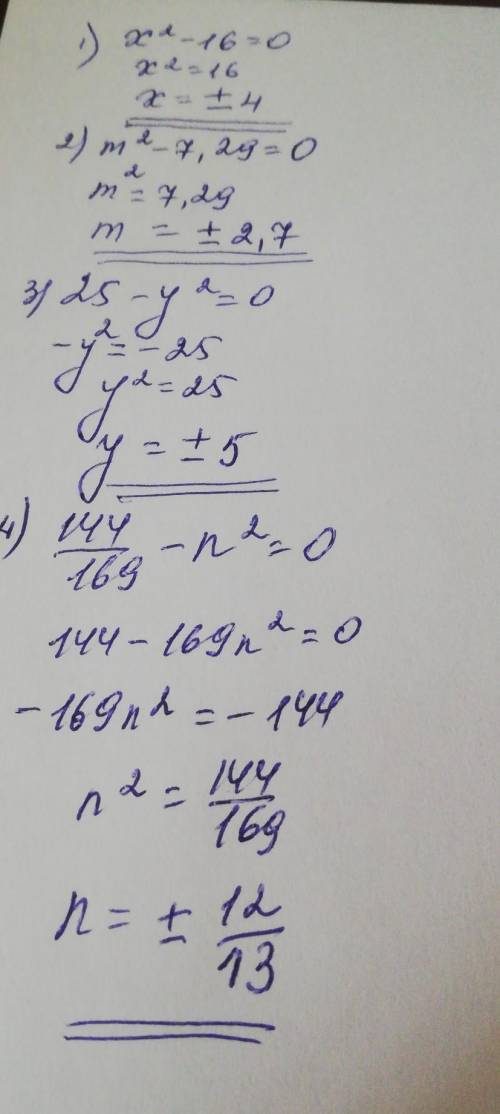 1) x² - 16 = 0
x² = 16
x = ± 4
2) m² - 7,29 = 0
m² = 7,29
m = ± 2,7
3) 25 - y² = 0
-y² = -25
y² = 25
y = ± 5
4) 144/169 - n² = 0
144 - 169n² = 0
-169n² = -144
n² = 144/169
n = ± 12/13